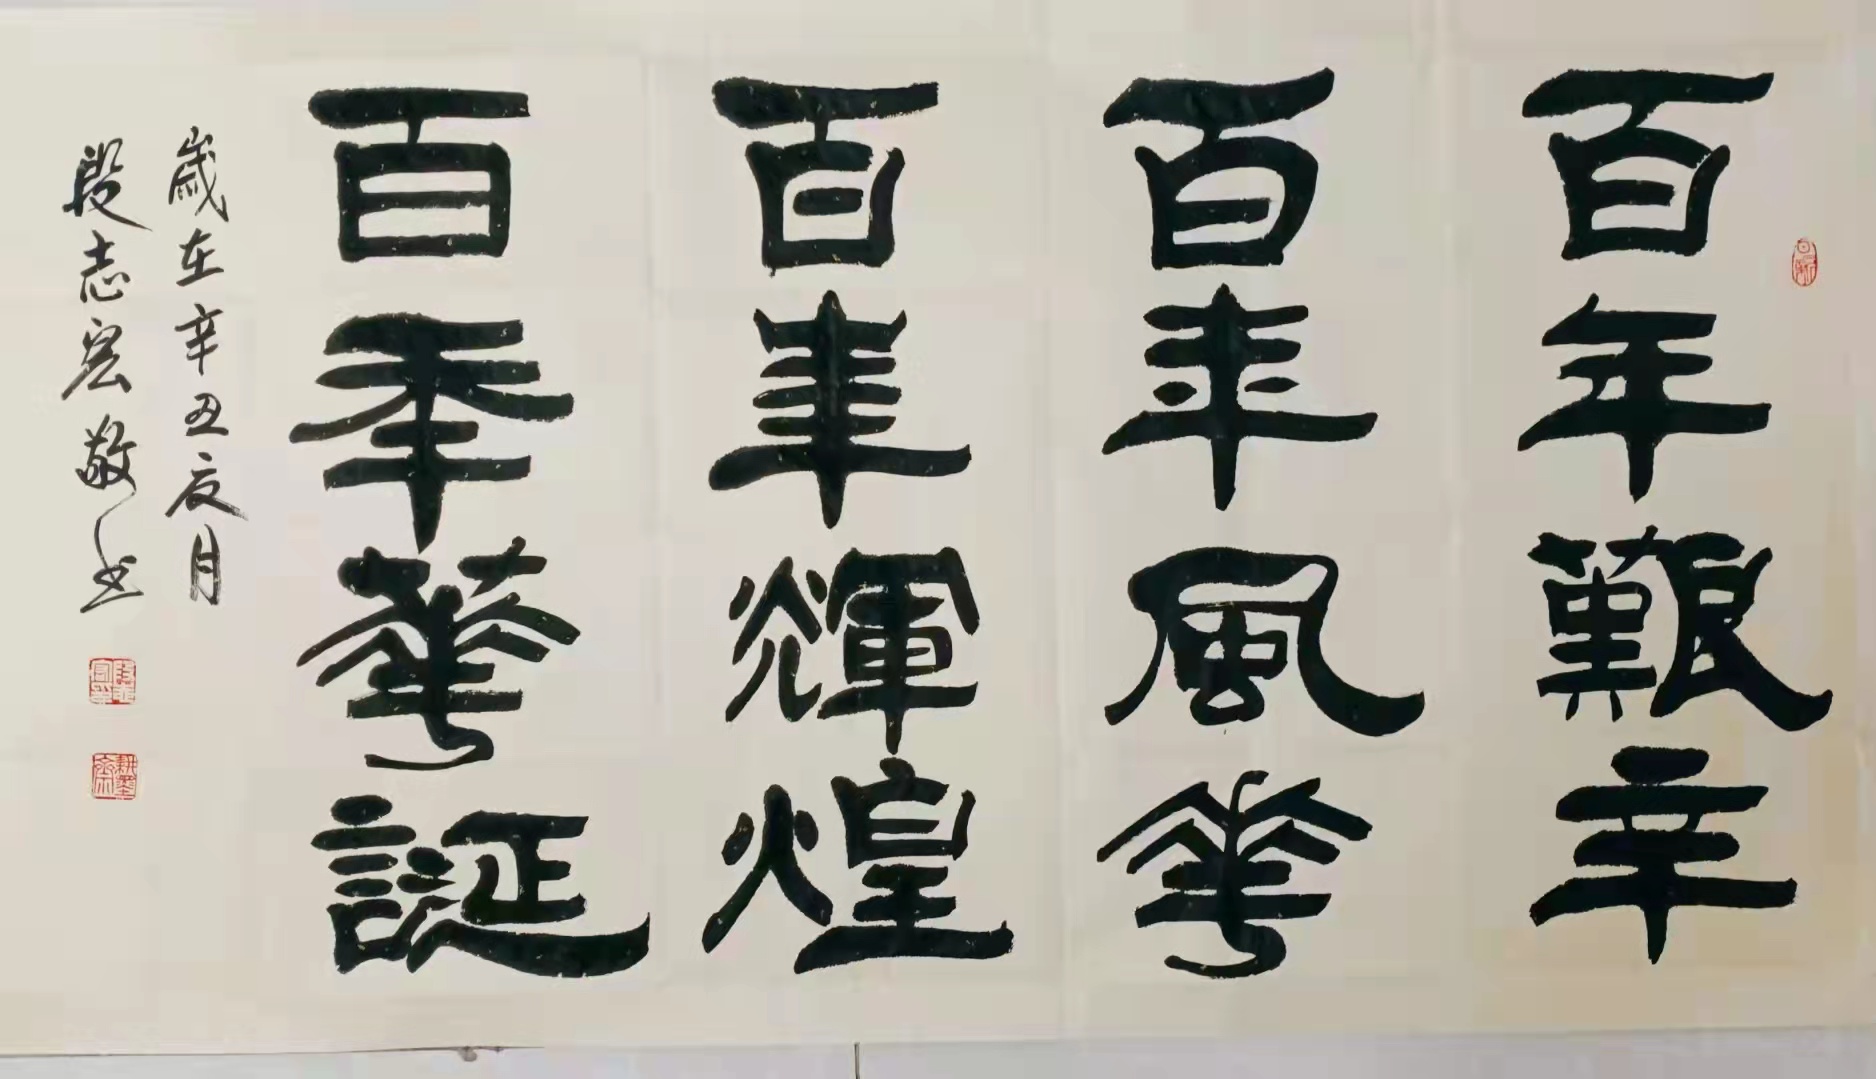 百年艱辛
百年風華
百年輝煌
百年華誕
歲在辛丑辰月
段志宏敬书